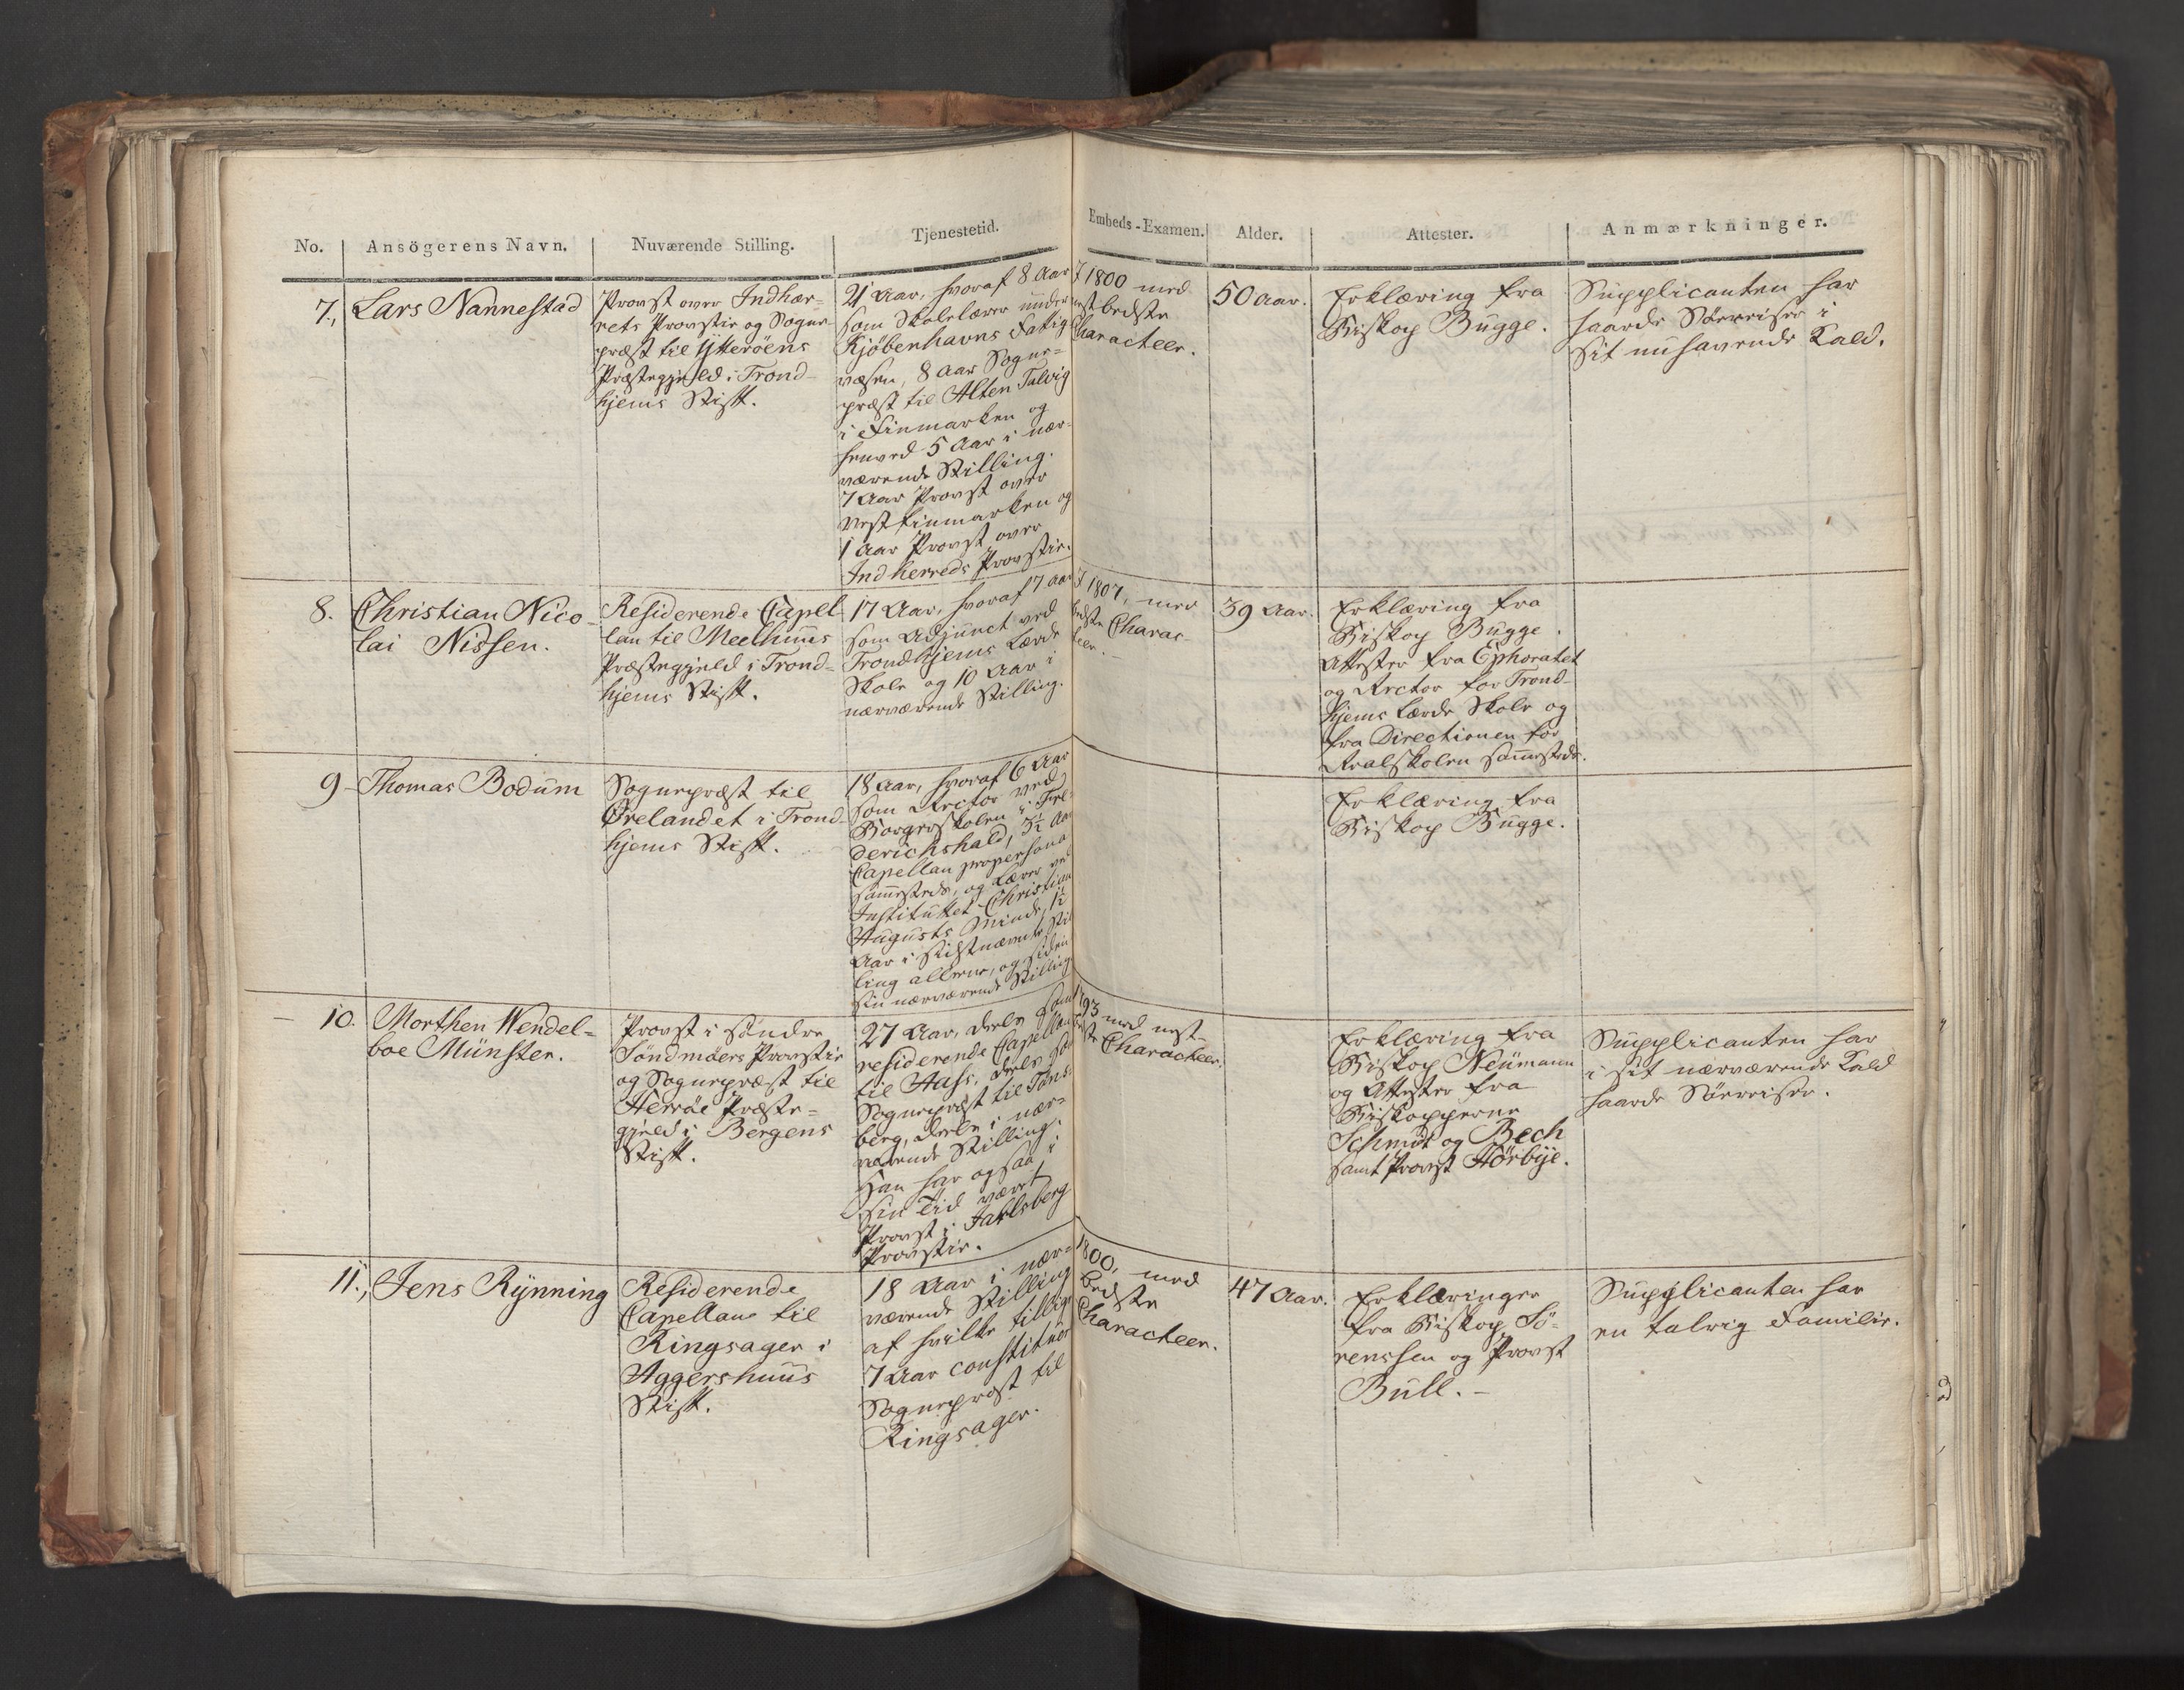 No.
Ansögerens Navn.
Nuværende Stilling.
Tjenestetid.
Embeds-Examen.
Alder.
Attester.
Anmærkninger.
7.,
Lars Nannestad
Provst over Indhær=
rets Provstie og Sogne-
præst til Ytteröens
Præstegjeld i Trond-
hjems Stift.
21 Aar, hvoraf 8 Aar
som Skolelærer under
Kjöbenhavns Fattig
væsen, 8 Aar Sogne=
præst til Alten Talvig
i Finmarken og
henved 5 Aar i nær-
værende Stilling.
7 Aar Provst over
Vestfinmarken og
1 Aar Provst over
Indherreds Provstie.
I 1800 med
næstbedste
Characteer.
50 Aar.
Erklæring fra
Biskop Bugge.
Supplicanten har
haarde Sörreiser i
sit nuhavende Kald.
8.
Christian Nico-
lai Nissen.
Residerende Capel-
lan til Meelhuus
Præstegjeld i Trond=
hjems Stift.
17 Aar, hvoraf 7 Aar
som Adjunct ved
Trondhjems Lærde
Skole og 10 Aar i
nærværende Stilling.
I 1807, med
bedste Charac-
teer.
39 Aar.
Erklæring fra
Biskop Bugge.
Attester fra Ephoratet
og Rector for Trond-
hjems Lærde Skole og
fra Directionen for
Realskolen sammesteds.
9-
Thomas Bodum
Sognepræst til
Ørelandet i Trond-
hjems Stift.
18 Aar, hvoraf 6 Aar
som Rector ved
Borgerskolen i Fre-
derichshald, 3½ Aar
Capellan propersona
sammesteds, og Lærer ved
Instituttet Christian
Augusts Minde, 1½
Aar i sidstnævnte Stil
ling allene, og siden
sin nærværende Stilling
Erklæring fra
Biskop Bugge.
10.
Morthen Wendel=
boe Münster.
Provst i söndre
Söndmöers Provstie
og Sognepræst til
Herröe Præste=
gjeld i Bergens
Stift.
27 Aar, deels som
residerende Capellan
til Aass, deels som
Sognepræst til Töns-
berg, deels i nær-
værende Stilling.
Han har ogsaa i
sin Tid været
Provst i Jarlsberg
Provstie.
1793 med nest-
bedste Characteer.
Erklæring fra
Biskop Neumann
og Attester fra
Biskopperne
Schmidt og Bech
samt Provst Hörbye.
Supplicanten har
i sit nærværende Kald
haarde Sörreiser.
11.,
Jens Rynning
Residerende
Capellan til
Ringsager i
Aggershuus
Stift.
18 Aar i nær=
værende Stilling
af hvilke tillige
7 Aar constitueret
Sognepræst til
Ringsager.
1800, med
bedste
Characteer.
47 Aar.
Erklæringer
fra Biskop Sö-
renssen og Provst
Bull. -
Supplicanten har
en talrig Familie.